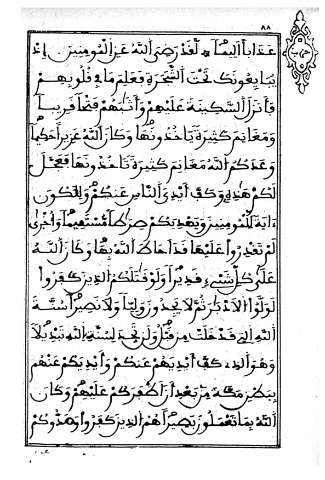 ٨٨
عذابا أليما لقد رضي الله عن المومنين إذ
يبايعونك تحت الشجرة فعلم ما في قلوبهم
فأنزل السكينة عليهم وأثبهم فتحا قريبا
ومغانم كثيرة ياخذونها وكان الله عزيزا حكيما
وعدكم الله مغانم كثيرة تاخذونها فعجل
لكم هذه وكف أيدي الناس عنكم ولتكون
ءاية للمومنين ويهديكم صراطا مستقيما وأخرى
لم تقدروا عليها قد أحاط الله بها وكان الله
على كل شيء قديرا ولو قتلكم الذين كفروا
لولوا الادبار ثم لا يجدون وليا ولا نصيرا سنة
الله التي قد خلت من قبل ولن تجد لسنة الله تبديلا
وهو الذي كف أيديهم عنكم وأيديكم عنهم
ببطن مكة من بعد أن أظفركم عليهم وكان
الله بما تعملون بصيرا هم الذين كفروا وصدوكم